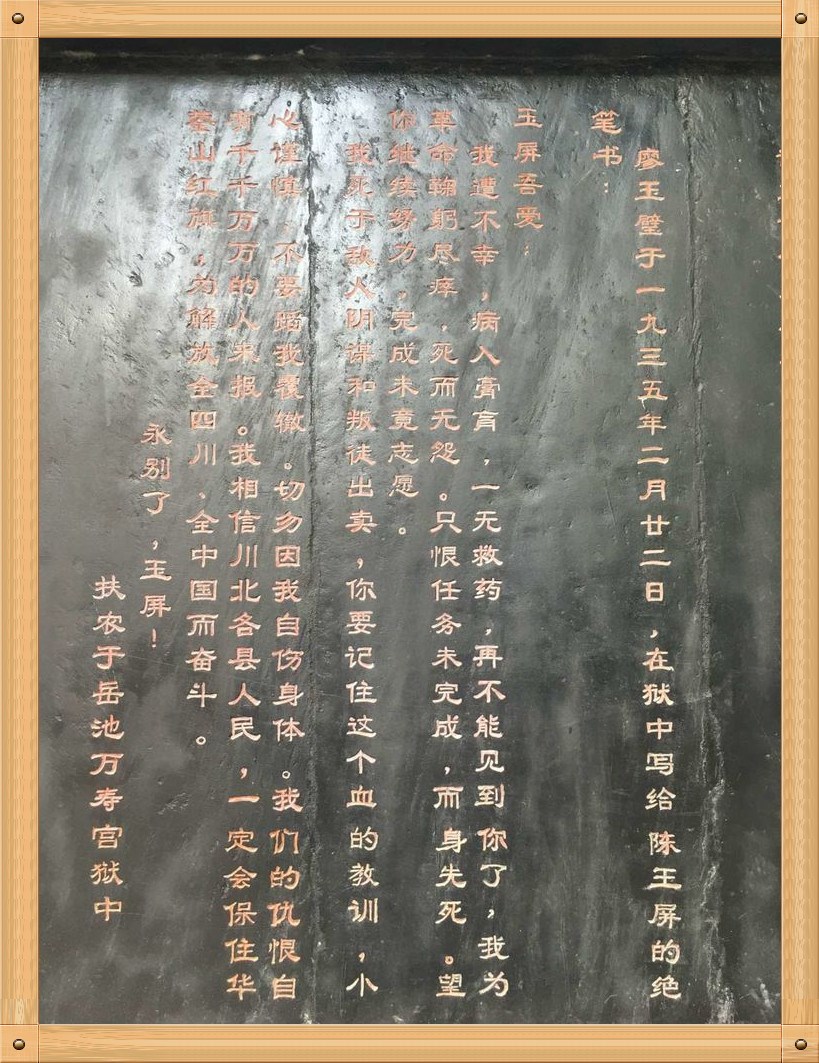 廖玉璧于一九三五年二月廿二日，在狱中写给陈玉屏的绝
笔书：
玉屏吾爱：
我遭不幸，病入膏肓，一无救药，再不能见到你了，我为
革命鞠躬尽瘁，死而无怨。只恨任务未完成，而身先死。望
你继续努力，完成未竟志愿。
我死于敌人阴谋和叛徒出卖，你要记住这个血的教训，小
心谨慎，不要蹈我覆辙。切勿因我自伤身体。我们的仇恨自
有千千万万的人来报。我相信川北各县人民，一定会保住华
蓥山红旗，为解放全四川、全中国而奋斗。
永别了，玉屏！
扶农于岳池万寿宫狱中